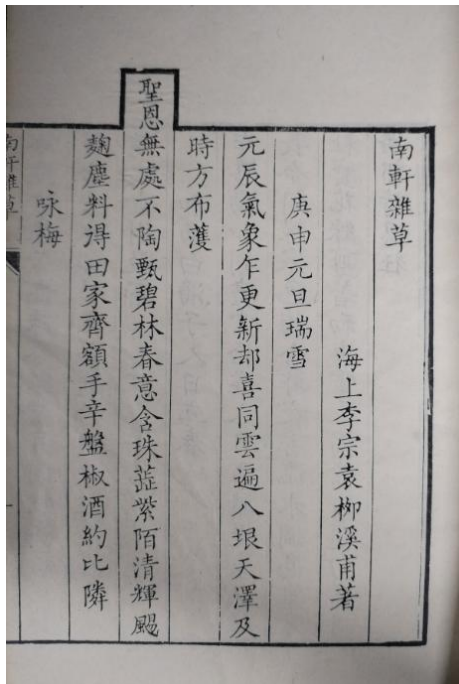 南軒雜草
海上李宗袁栁溪甫著
庚申元旦瑞雪
元辰氣象乍更新却喜同雲遍八垠天澤及
時方布濩
聖恩無處不陶甄碧林春意含珠蕋紫陌清輝颺
麴塵料得田家齊額手辛盤椒酒約比隣
咏梅
南軒雜草